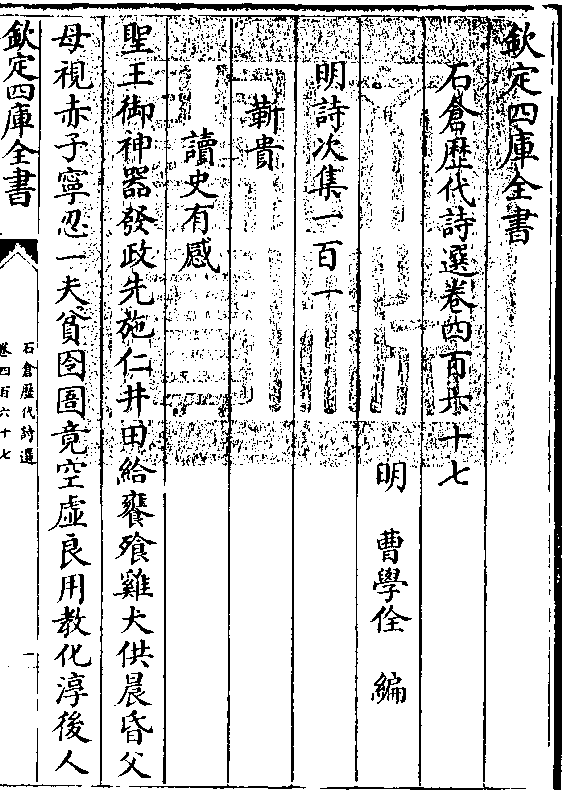 欽定四庫全書
石倉歴代詩選卷四百六十七
明 曹學佺 編
明詩次集一百一
靳貴
讀史有感
聖王御神器發政先施仁井田給饔飱雞犬供晨昏父
母視赤子寧忍一夫貧囹圄竟空虛良用教化淳後人
欽定四庫全書
石倉歴代詩選
卷四百六十七
一